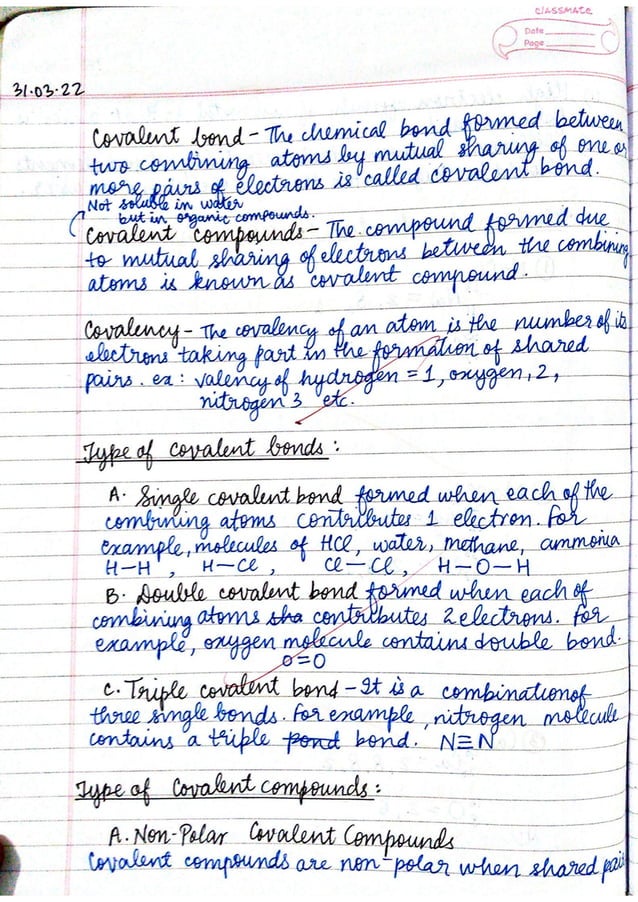 classmate
Date
Page
31.03.22
Covalent bond - The chemical bond formed between
two combining atoms by mutual sharing of one or
more pairs of electrons is called covalent bond.
Not soluble in water
but in organic compounds.
Covalent compounds - The compound formed due
to mutual sharing of electrons between the combining
atoms is known as covalent compound.
Covalency - The covalency of an atom is the number of its
electrons taking part in the formation of shared
pairs. ex: valency of hydrogen = 1, oxygen, 2,
nitrogen 3 etc.
Type of covalent bonds :
A. Single covalent bond formed when each of the
combining atoms contributes 1 electron. For
example, molecules of HCl, water, methane, ammonia
H-H , H-Cl , Cl-Cl, H-O-H
B. Double covalent bond formed when each of
combining atoms sha contributes 2 electrons. for
example, oxygen molecule contains double bond.
O=O
C. Triple covalent bond - It is a combination of
three single bonds. For example, nitrogen molecule
contains a triple pond bond. N≡N
Type of Covalent compounds :
A. Non-Polar Covalent Compounds
Covalent compounds are non-polar when shared pair